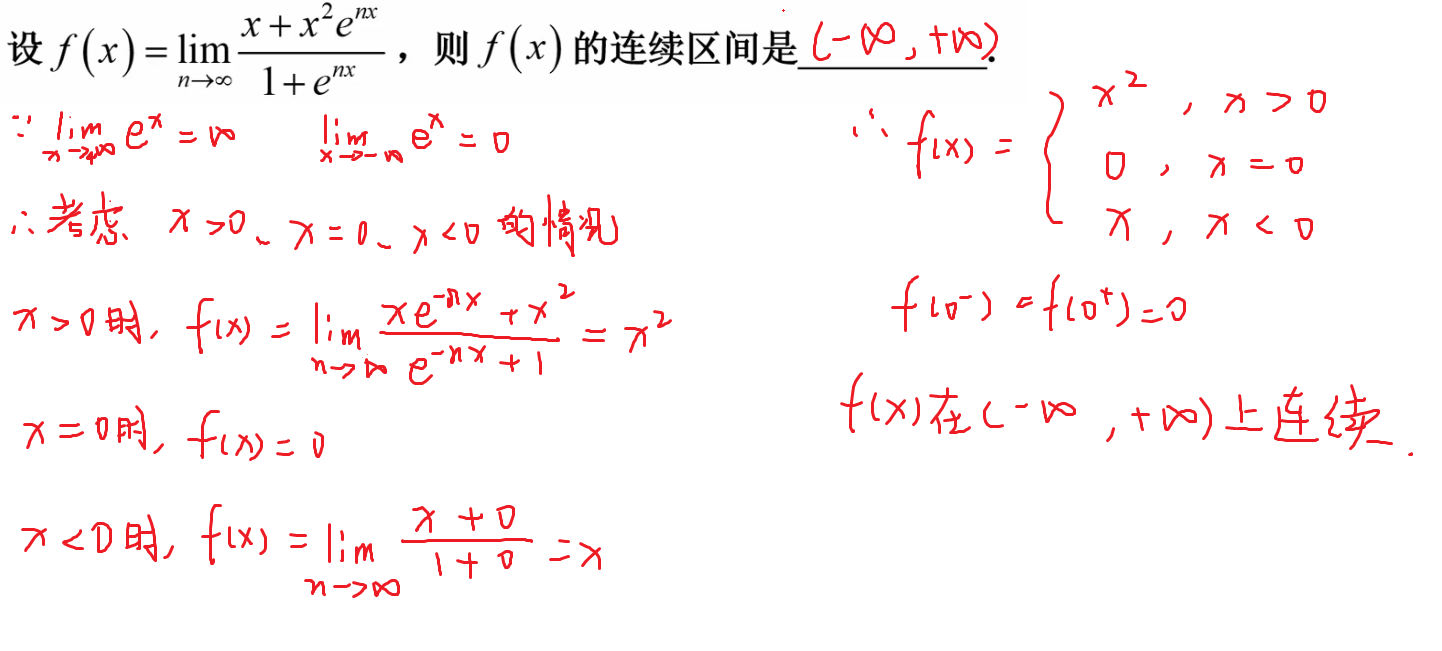 设 f(x) = lim_{n→∞} (x + x²e^{nx}) / (1 + e^{nx}) ，则 f(x) 的连续区间是 (-∞, +∞).
∵ lim_{x→+∞} e^x = ∞  lim_{x→-∞} e^x = 0
∴ 考虑 x>0、x=0、x<0 的情况
x>0时, f(x) = lim_{n→∞} (xe^{-nx} + x²) / (e^{-nx} + 1) = x²
x=0时, f(x) = 0
x<0时, f(x) = lim_{n→∞} (x+0) / (1+0) = x
∴ f(x) = { x² , x>0
0 , x=0
x , x<0
f(0⁻) = f(0⁺) = 0
f(x)在(-∞, +∞)上连续.